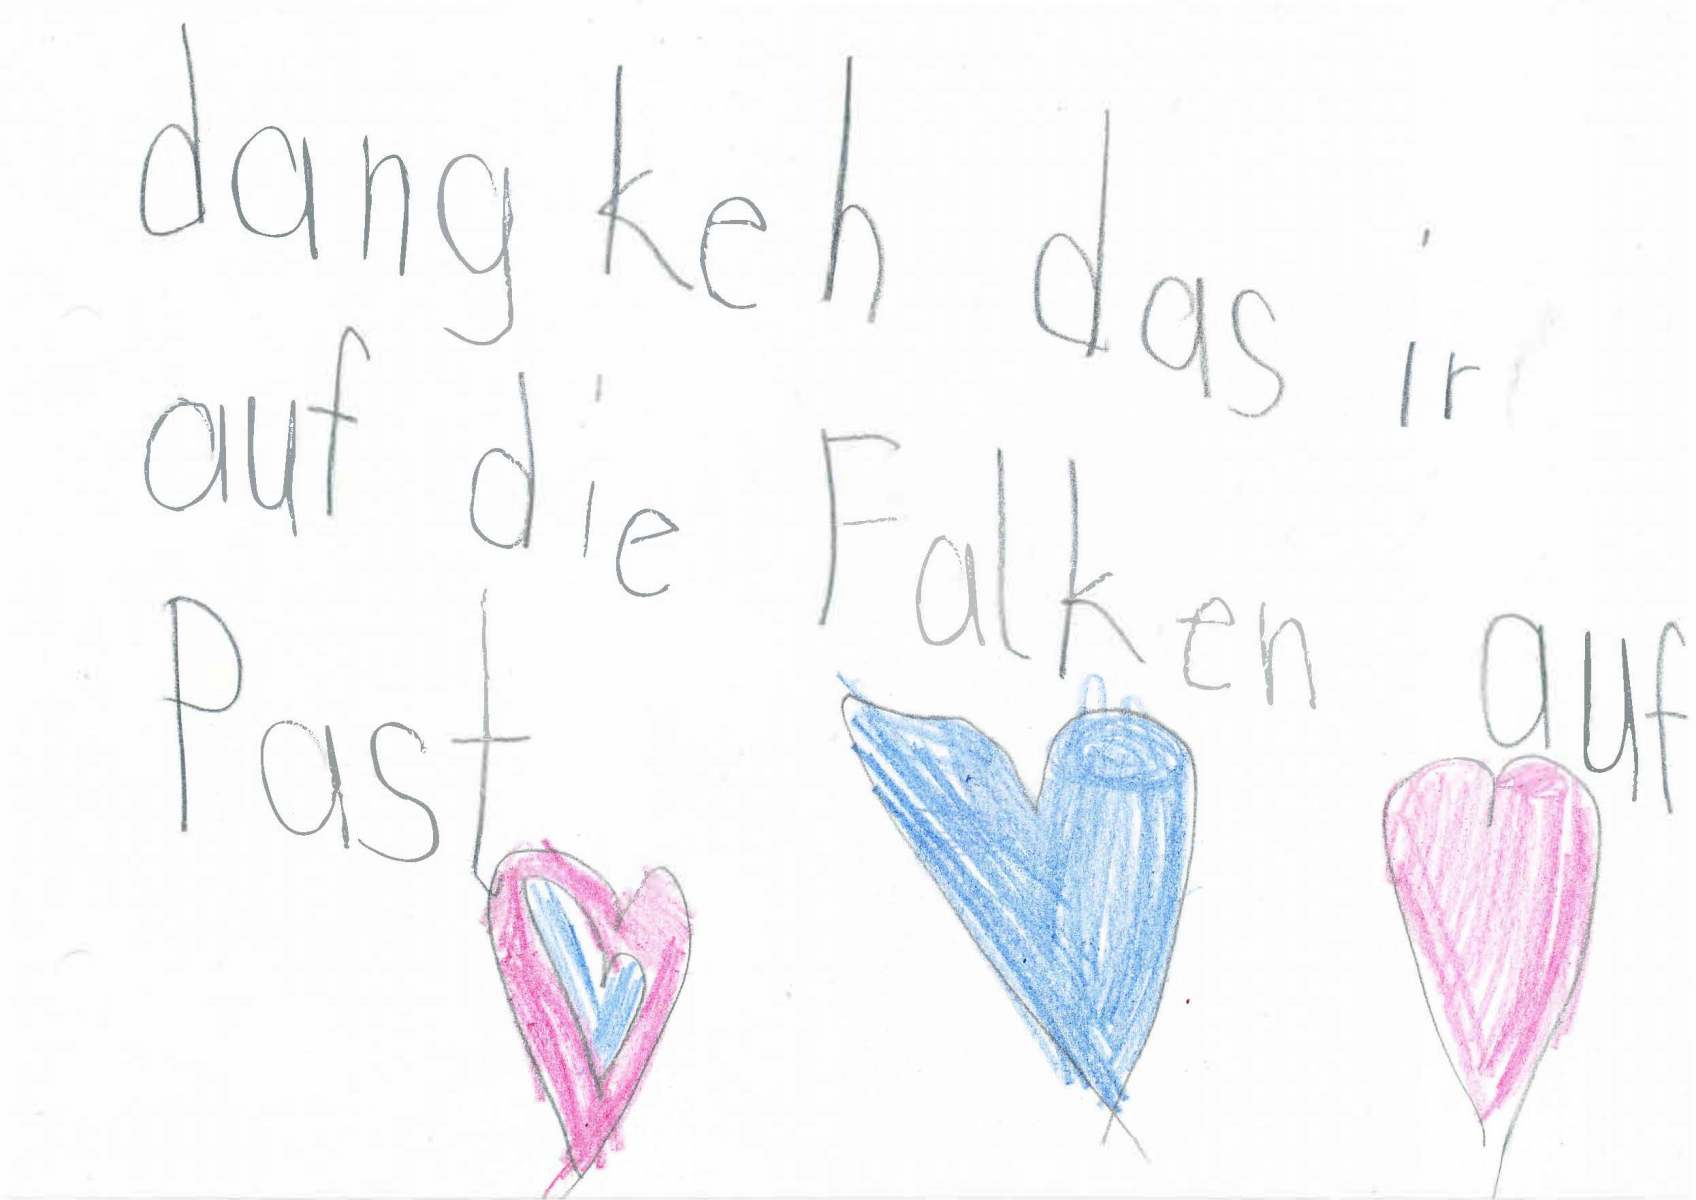 dang keh das ir
auf die Falken auf
Past